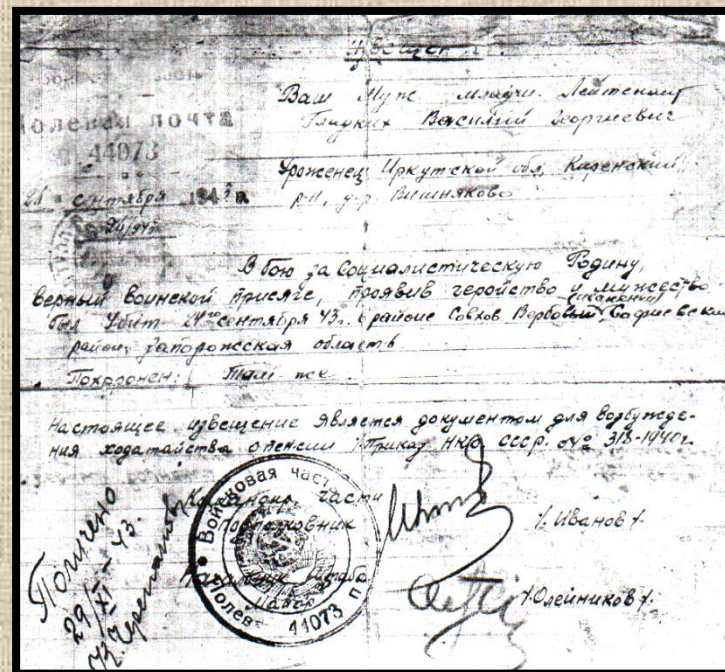 Извещение
Полевая почта
44073
21 сентября 1943 г.
Ваш Муж младш. Лейтенант
Гладких Василий Георгиевич
Уроженец Иркутской обл, Каренский
р-н, Вишняково
В бою за Социалистическую Родину,
верный воинской присяге, проявив геройство и мужество
был Убит 21го сентября 43г. в районе Совхоз Вербовый
район, Запорожская область
Похоронен: Там же
Настоящее извещение является документом для возбужде-
ния ходатайства о пенсии /Приказ НКО СССР. № 318-1940г.
Командир части
Подполковник /Иванов/.
Начальник Штаба
Майор /Олейников/.
Войсковая часть
Полев 44073 п
Получено
29/XI - 43.